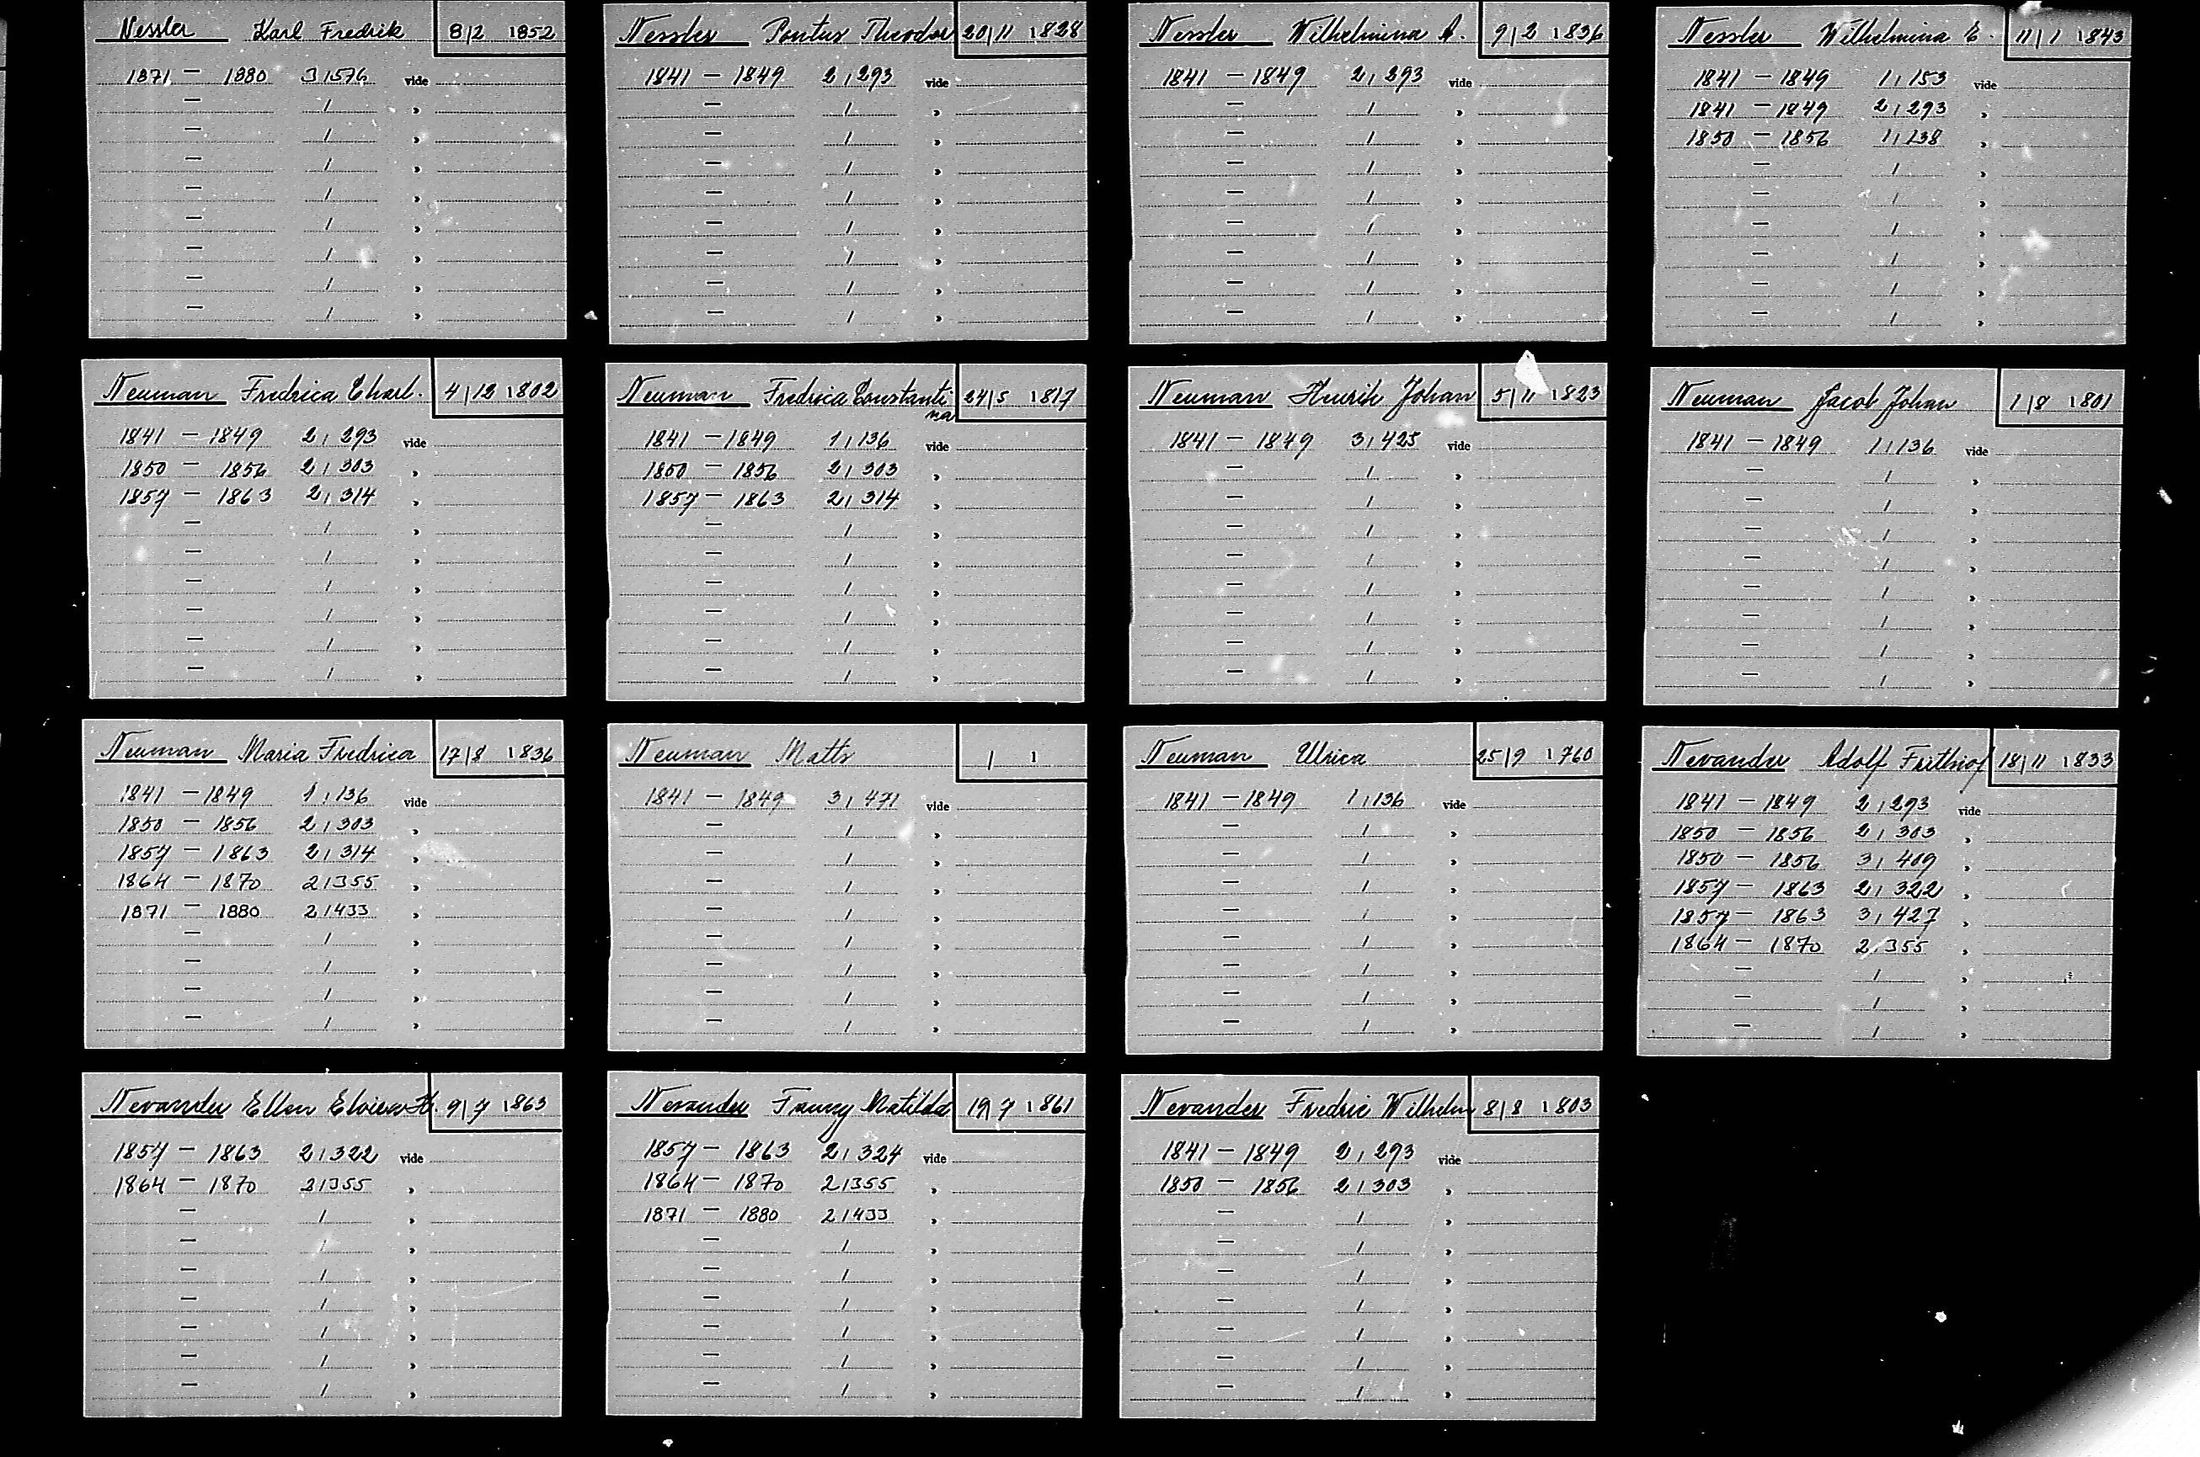 Nessler Karl Fredrik 8/2 1852
1871 — 1880 3/576 vide
Nessler Pontus Theodor 20/11 1828
1841 — 1849 2/293 vide
Nessler Wilhelmina A. 9/2 1836
1841 — 1849 2/293 vide
Nessler Wilhelmina E. 11/1 1843
1841 — 1849 1/153 vide
1841 — 1849 2/293 "
1850 — 1856 1/138 "
Neuman Fredrica Charl. 4/12 1802
1841 — 1849 2/293 vide
1850 — 1856 2/303 "
1857 — 1863 2/314 "
Neuman Fredrica Constanti-
na 24/5 1817
1841 — 1849 1/136 vide
1850 — 1856 2/303 "
1857 — 1863 2/314 "
Neuman Henrik Johan 5/11 1823
1841 — 1849 3/425 vide
Neuman Jacob Johan 1/8 1801
1841 — 1849 1/136 vide
Neuman Maria Fredrica 17/8 1836
1841 — 1849 1/136 vide
1850 — 1856 2/303 "
1857 — 1863 2/314 "
1864 — 1870 2/355 "
1871 — 1880 2/433 "
Neuman Matts / 1
1841 — 1849 3/471 vide
Neuman Ulrica 25/9 1760
1841 — 1849 1/136 vide
Nevander Adolf Frithiof 18/11 1833
1841 — 1849 2/293 vide
1850 — 1856 2/303 "
1850 — 1856 3/409 "
1857 — 1863 2/322 "
1857 — 1863 3/427 "
1864 — 1870 2/355 "
Nevander Ellen 9/7 1863
1857 — 1863 2/322 vide
1864 — 1870 2/355 "
Nevander Fanny Matilda 19/7 1861
1857 — 1863 2/324 vide
1864 — 1870 2/355 "
1871 — 1880 2/433 "
Nevander Fredric Wilhelm 8/8 1803
1841 — 1849 2/293 vide
1850 — 1856 2/303 "